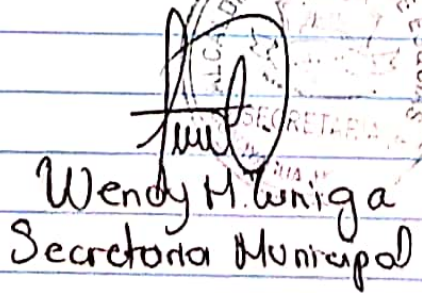 ALCALD
SECRETARIA
Wendy M. Zuniga
Secretaria Municipal